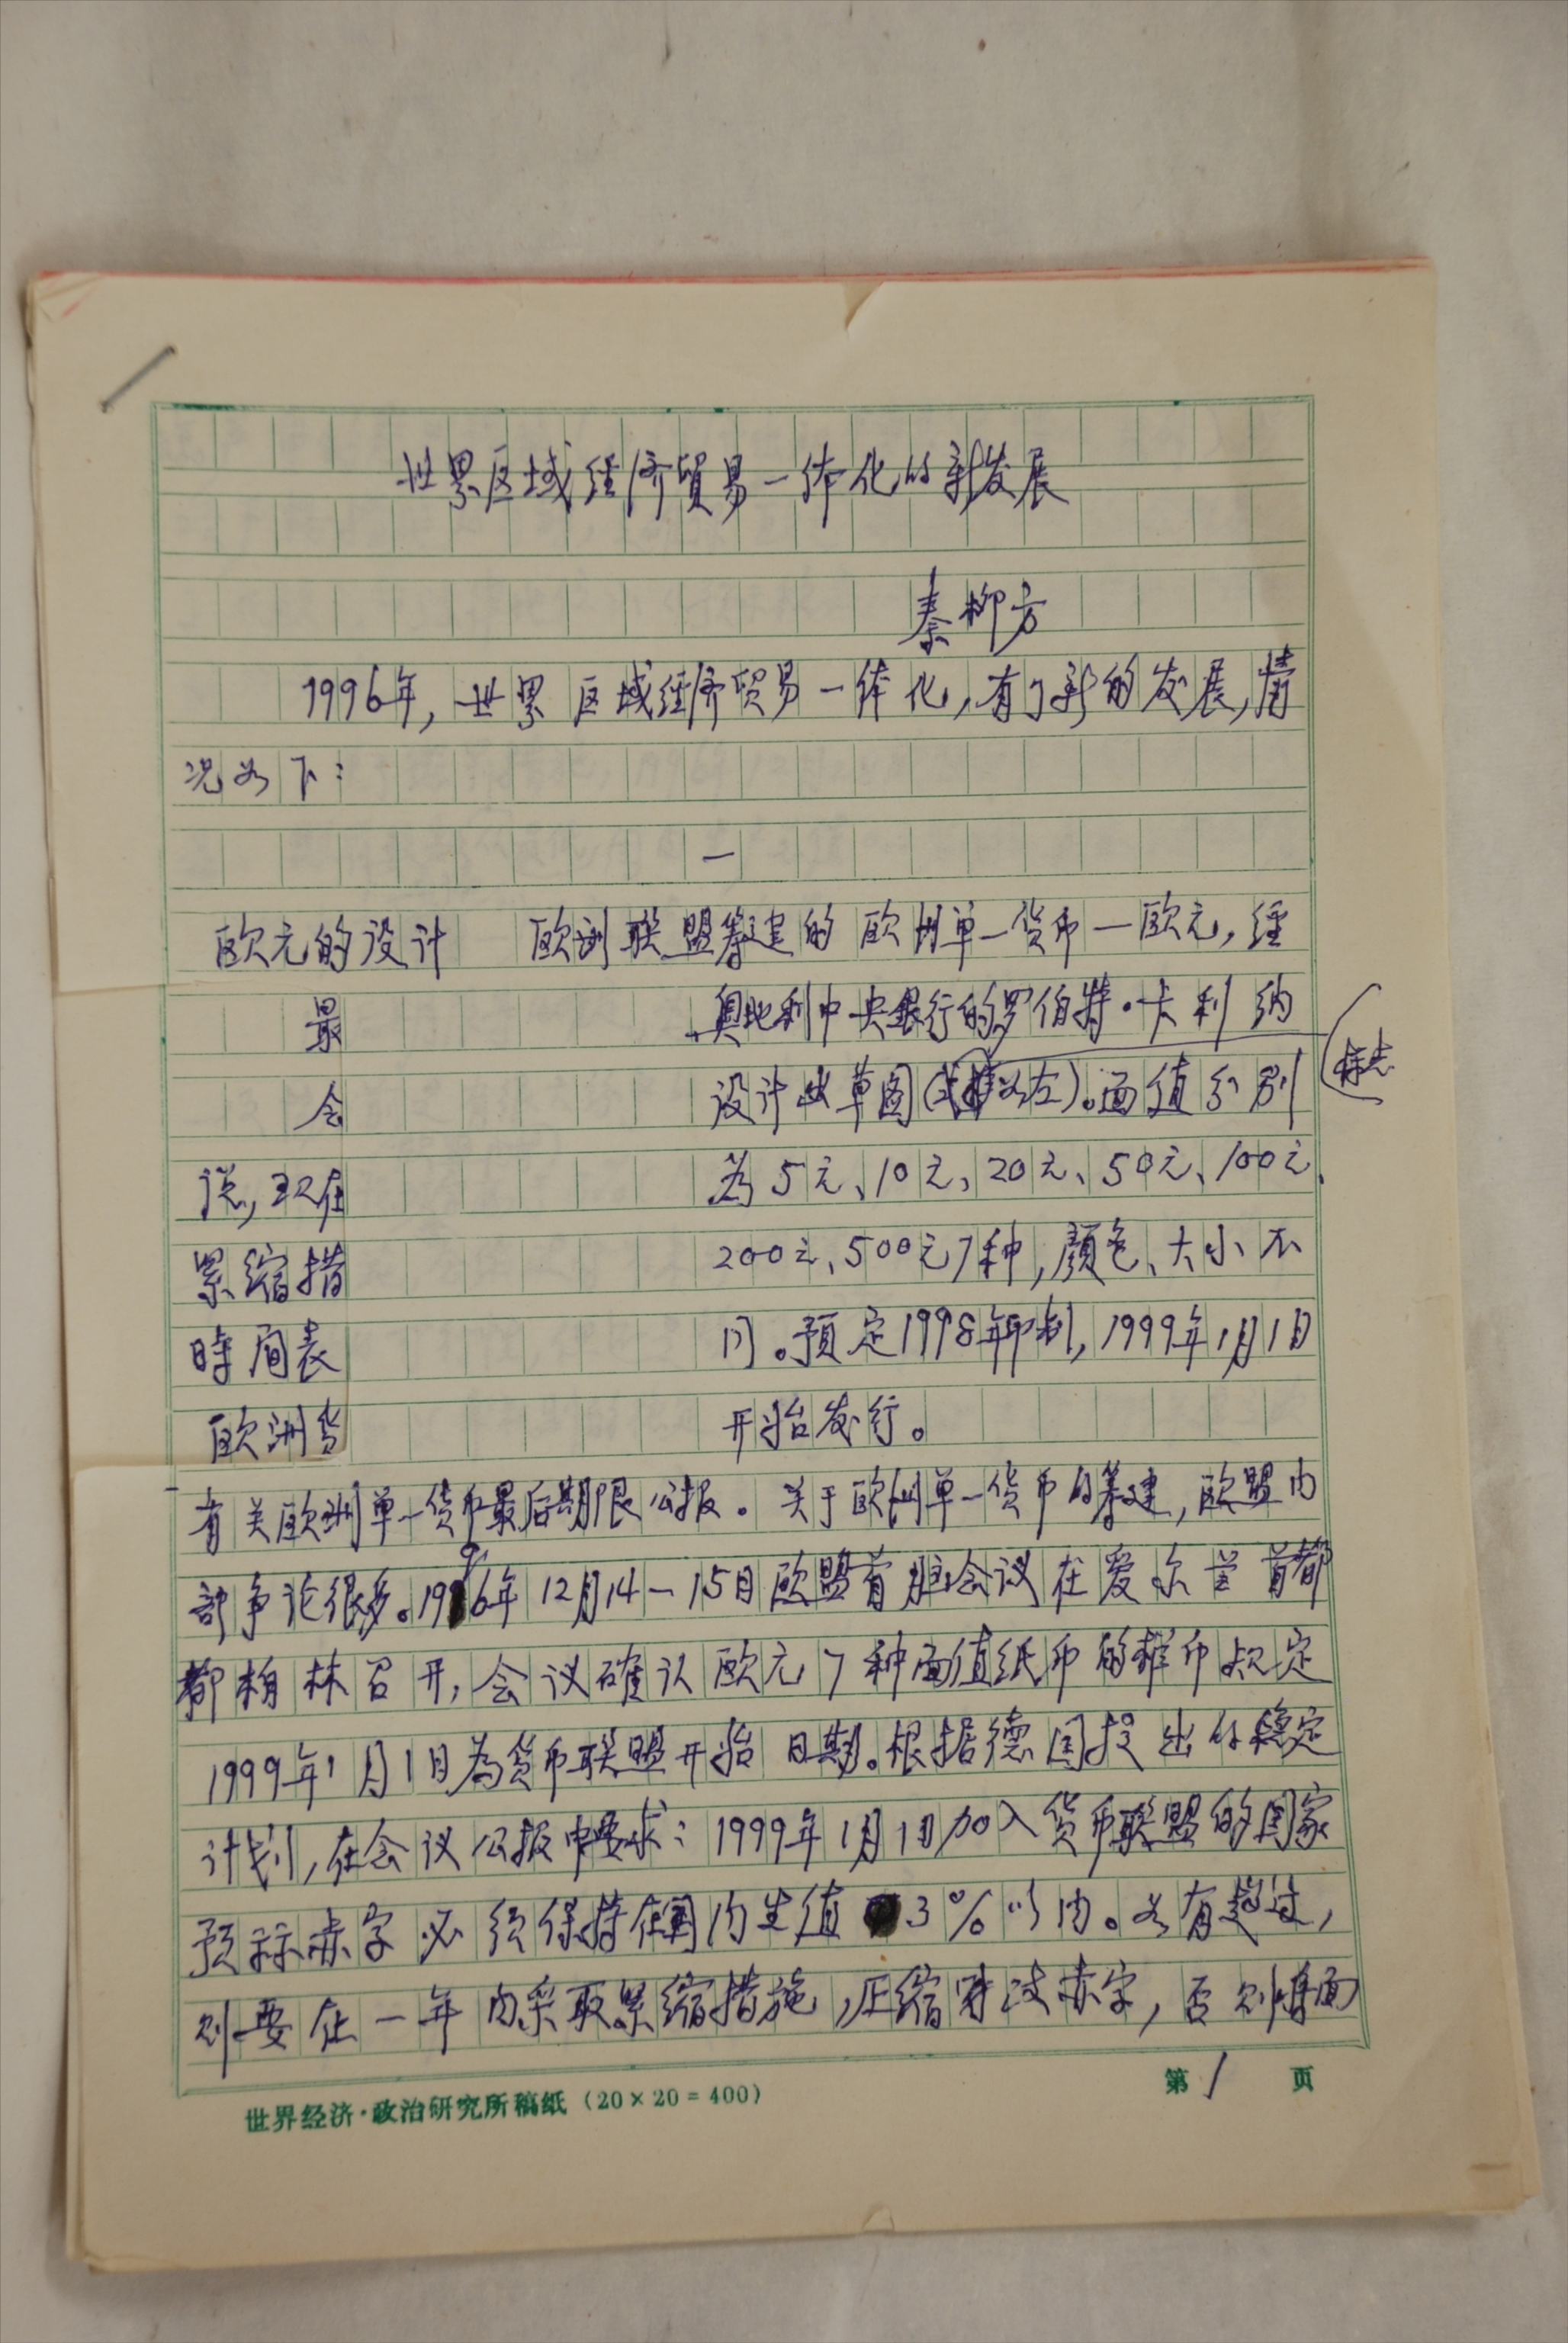 世界区域经济贸易一体化的新发展
秦柳方
1996年,世界区域经济贸易一体化,有了新的发展,情
况如下:
一
欧元的设计 欧洲联盟筹建的欧洲单一货币—欧元,经
最 奥地利中央銀行的罗伯特·卡利纳
会 设计出草图(如左)。面值分别
标志
说,现在 为5元、10元、20元、50元、100元、
紧缩措 200元、500元7种,颜色、大小不
時间表 同。预定1998年印制,1999年1月1日
欧洲货 开始发行。
有关欧洲单一货币最后期限公报。关于欧洲单一货币的筹建,欧盟内
部争论很多。1996年12月14—15日欧盟首脑会议在爱尔兰首都
都柏林召开,会议確认欧元7种面值纸币的样币规定
1999年1月1日为货币联盟开始日期。根据德国提出的稳定
计划,在会议公报中要求:1999年1月1日加入货币联盟的国家
预标赤字必须保持在国内生值3%以内。如有超过,
则要在一年内采取紧缩措施,压缩财政赤字,否则将面
世界经济·政治研究所稿纸(20×20=400)
第1页